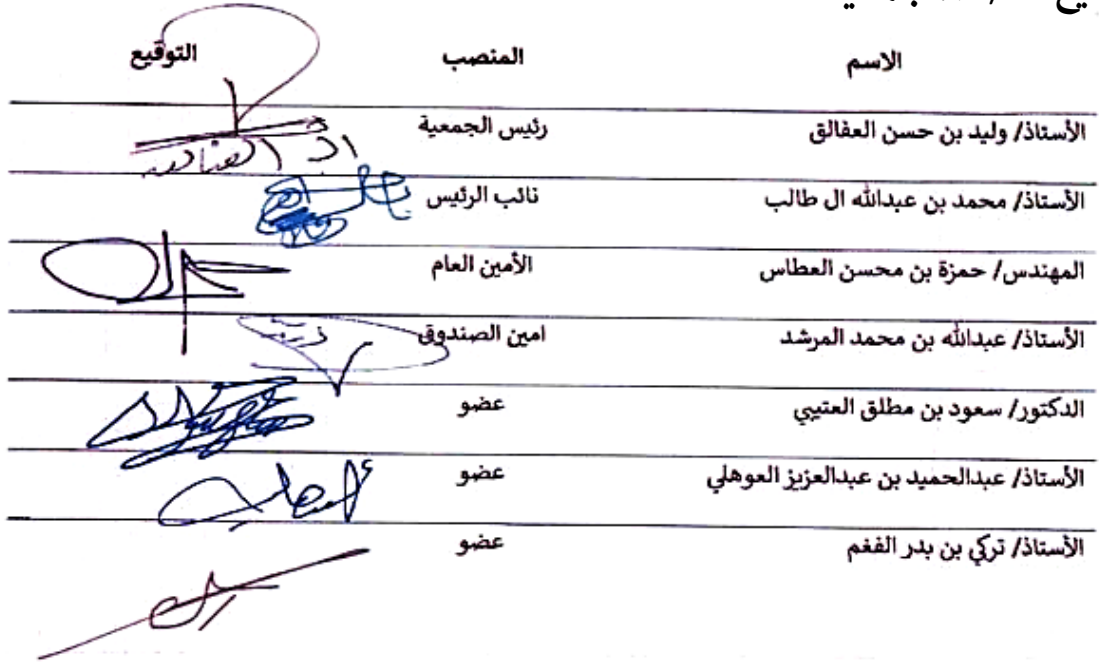 الاسم المنصب التوقيع
الأستاذ/ وليد بن حسن العفالق رئيس الجمعية
الأستاذ/ محمد بن عبدالله ال طالب نائب الرئيس
المهندس/ حمزة بن محسن العطاس الأمين العام
الأستاذ/ عبدالله بن محمد المرشد امين الصندوق
الدكتور/ سعود بن مطلق العتيبي عضو
الأستاذ/ عبدالحميد بن عبدالعزيز العوهلي عضو
الأستاذ/ تركي بن بدر الفغم عضو